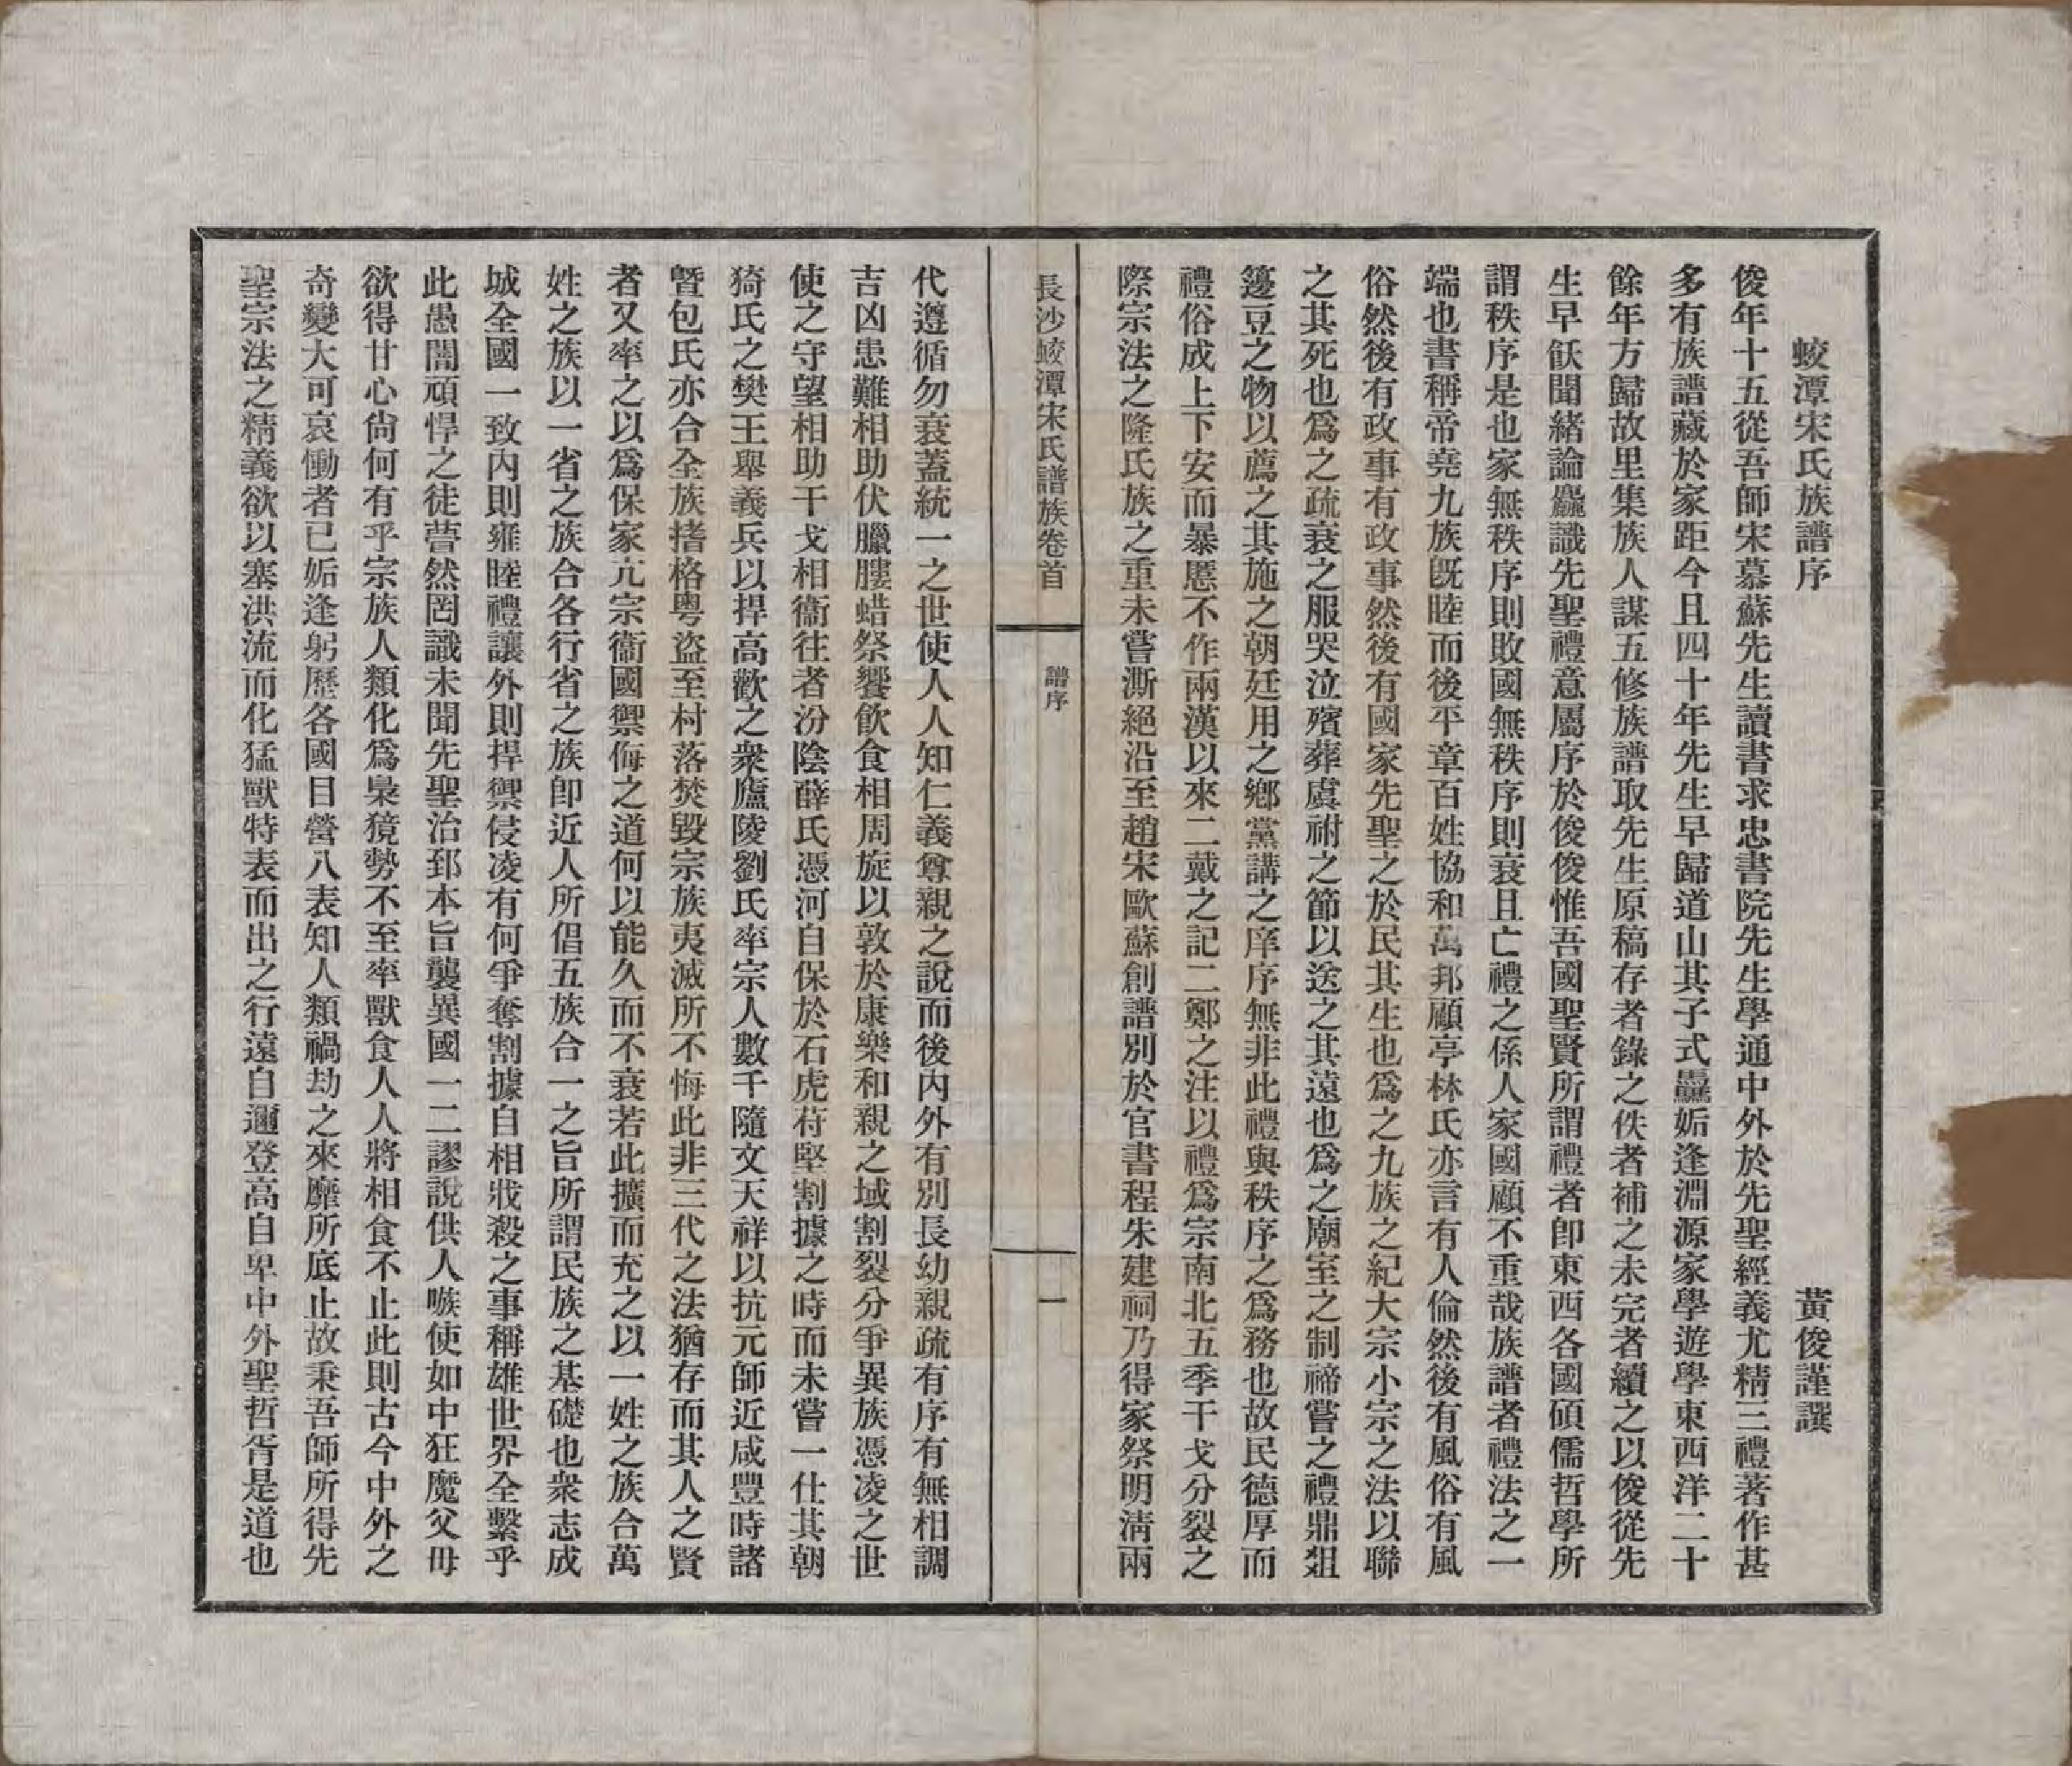 蛟潭宋氏族譜序　黃俊謹譔
俊年十五從吾師宋慕蘇先生讀書求忠書院先生學通中外於先聖經義尤精三禮著作甚
多有族譜藏於家距今且四十年先生早歸道山其子式驫姤逢淵源家學遊學東西洋二十
餘年方歸故里集族人謀五修族譜取先生原稿存者錄之佚者補之未完者續之以俊從先
生早飫聞緒論麤識先聖禮意屬序於俊俊惟吾國聖賢所謂禮者卽東西各國碩儒哲學所
謂秩序是也家無秩序則敗國無秩序則衰且亡禮之係人家國顧不重哉族譜者禮法之一
端也書稱帝堯九族旣睦而後平章百姓協和萬邦顧亭林氏亦言有人倫然後有風俗有風
俗然後有政事有政事然後有國家先聖之於民其生也爲之九族之紀大宗小宗之法以聯
之其死也爲之疏衰之服哭泣殯葬虞祔之節以送之其遠也爲之廟室之制禘嘗之禮鼎俎
籩豆之物以薦之其施之朝廷用之鄉黨講之庠序無非此禮與秩序之爲務也故民德厚而
禮俗成上下安而暴慝不作兩漢以來二戴之記二鄭之注以禮爲宗南北五季干戈分裂之
際宗法之隆氏族之重未嘗澌絕沿至趙宋歐蘇創譜別於官書程朱建祠乃得家祭明淸兩
長沙蛟潭宋氏譜族卷首　譜序　一
代遵循勿衰蓋統一之世使人人知仁義尊親之說而後內外有別長幼親疏有序有無相調
吉凶患難相助伏臘膢蜡祭饗飲食相周旋以敦於康樂和親之域割裂分爭異族憑凌之世
使之守望相助干戈相衞往者汾陰薛氏憑河自保於石虎苻堅割據之時而未嘗一仕其朝
猗氏之樊王舉義兵以捍高歡之衆廬陵劉氏率宗人數千隨文天祥以抗元師近咸豐時諸
曁包氏亦合全族搘格粵盜至村落焚毀宗族夷滅所不悔此非三代之法猶存而其人之賢
者又率之以爲保家亢宗衞國禦侮之道何以能久而不衰若此擴而充之以一姓之族合萬
姓之族以一省之族合各行省之族卽近人所倡五族合一之旨所謂民族之基礎也衆志成
城全國一致內則雍睦禮讓外則捍禦侵凌有何爭奪割據自相戕殺之事稱雄世界全繫乎
此愚闇頑悍之徒瞢然罔識未聞先聖治郅本旨襲異國一二謬說供人嗾使如中狂魔父毋
欲得甘心尙何有乎宗族人類化爲梟獍勢不至率獸食人人將相食不止此則古今中外之
奇變大可哀慟者已姤逢躬歷各國目營八表知人類禍劫之來靡所底止故秉吾師所得先
聖宗法之精義欲以塞洪流而化猛獸特表而出之行遠自邇登高自卑中外聖哲胥是道也